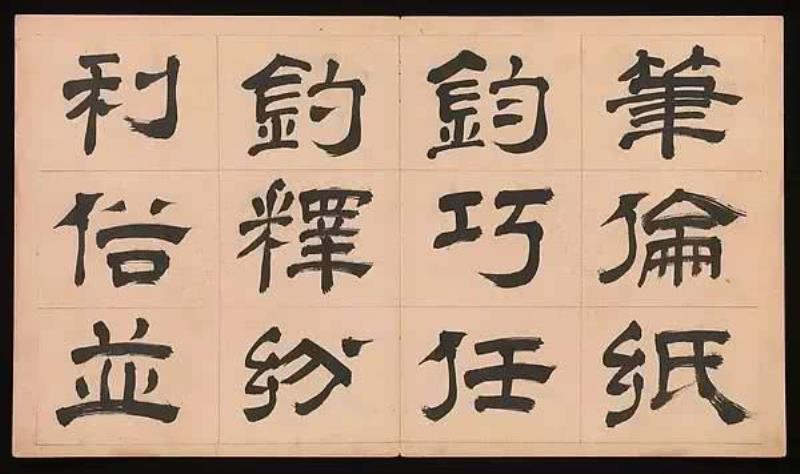 筆倫紙
鈞巧任
釣釋紛
利俗並